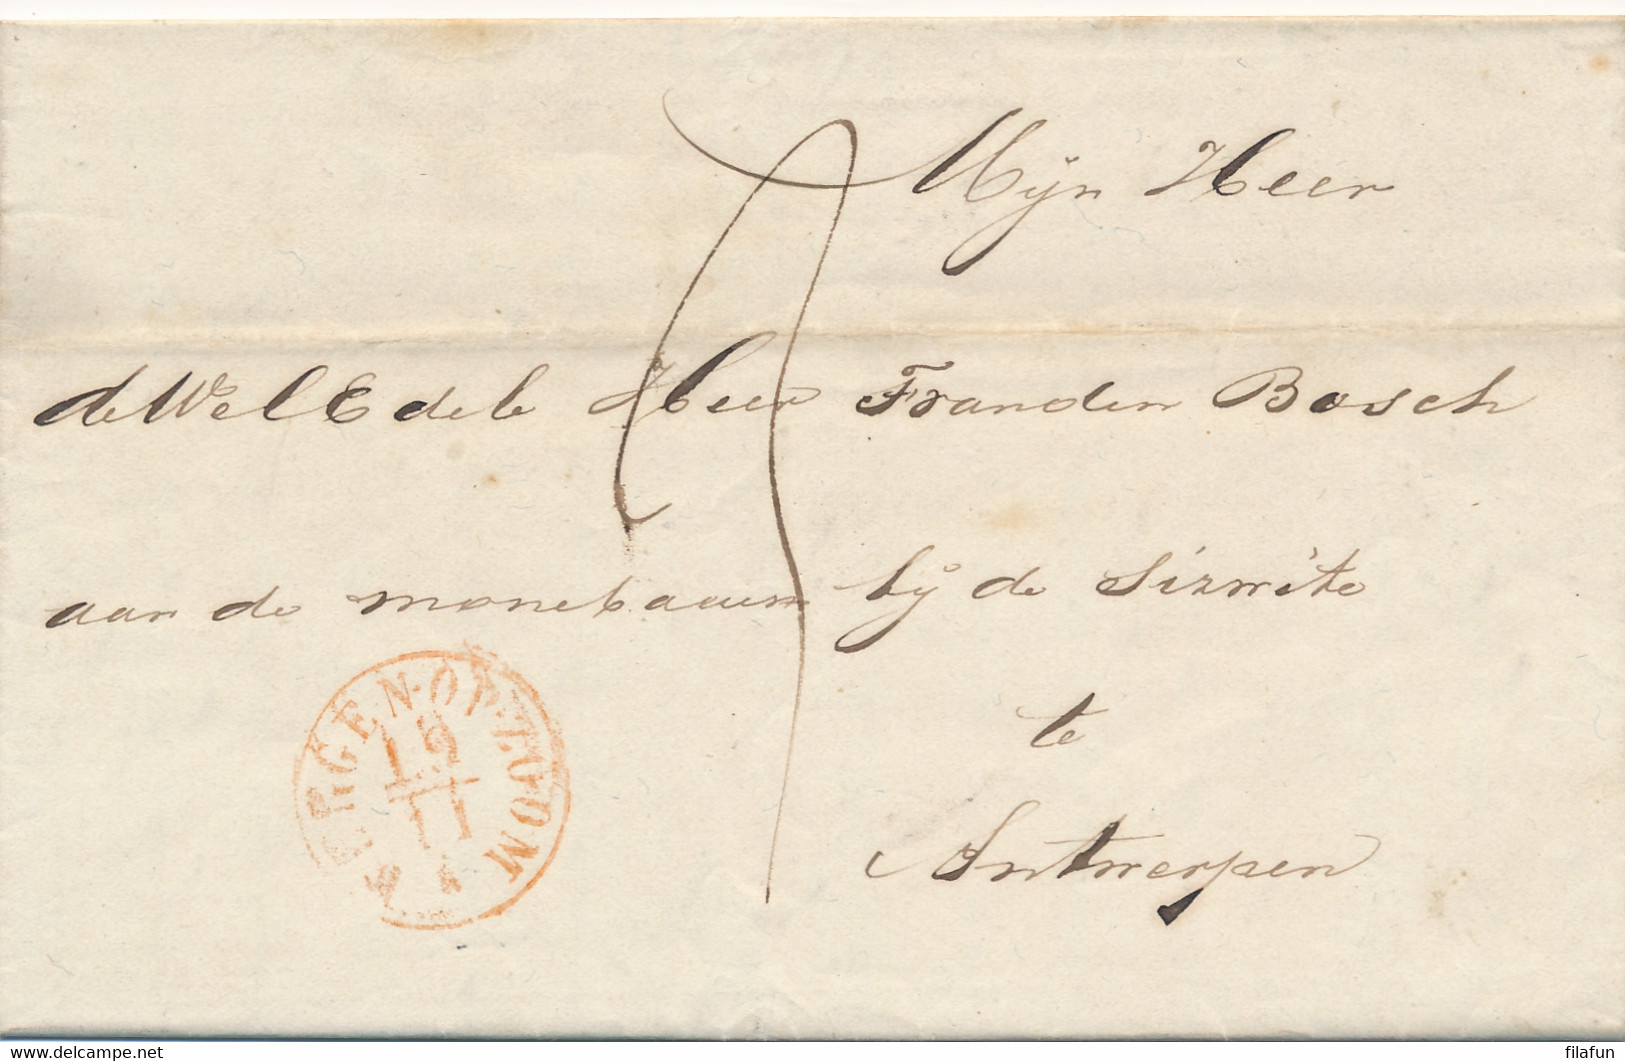 Mijn Heer
de Wel Edele Heer Franden Bosch
aan de monebaaum bij de
te
Antwerpen
BERGEN-OP-ZOOM
19
11
www.delcampe.net
filafun